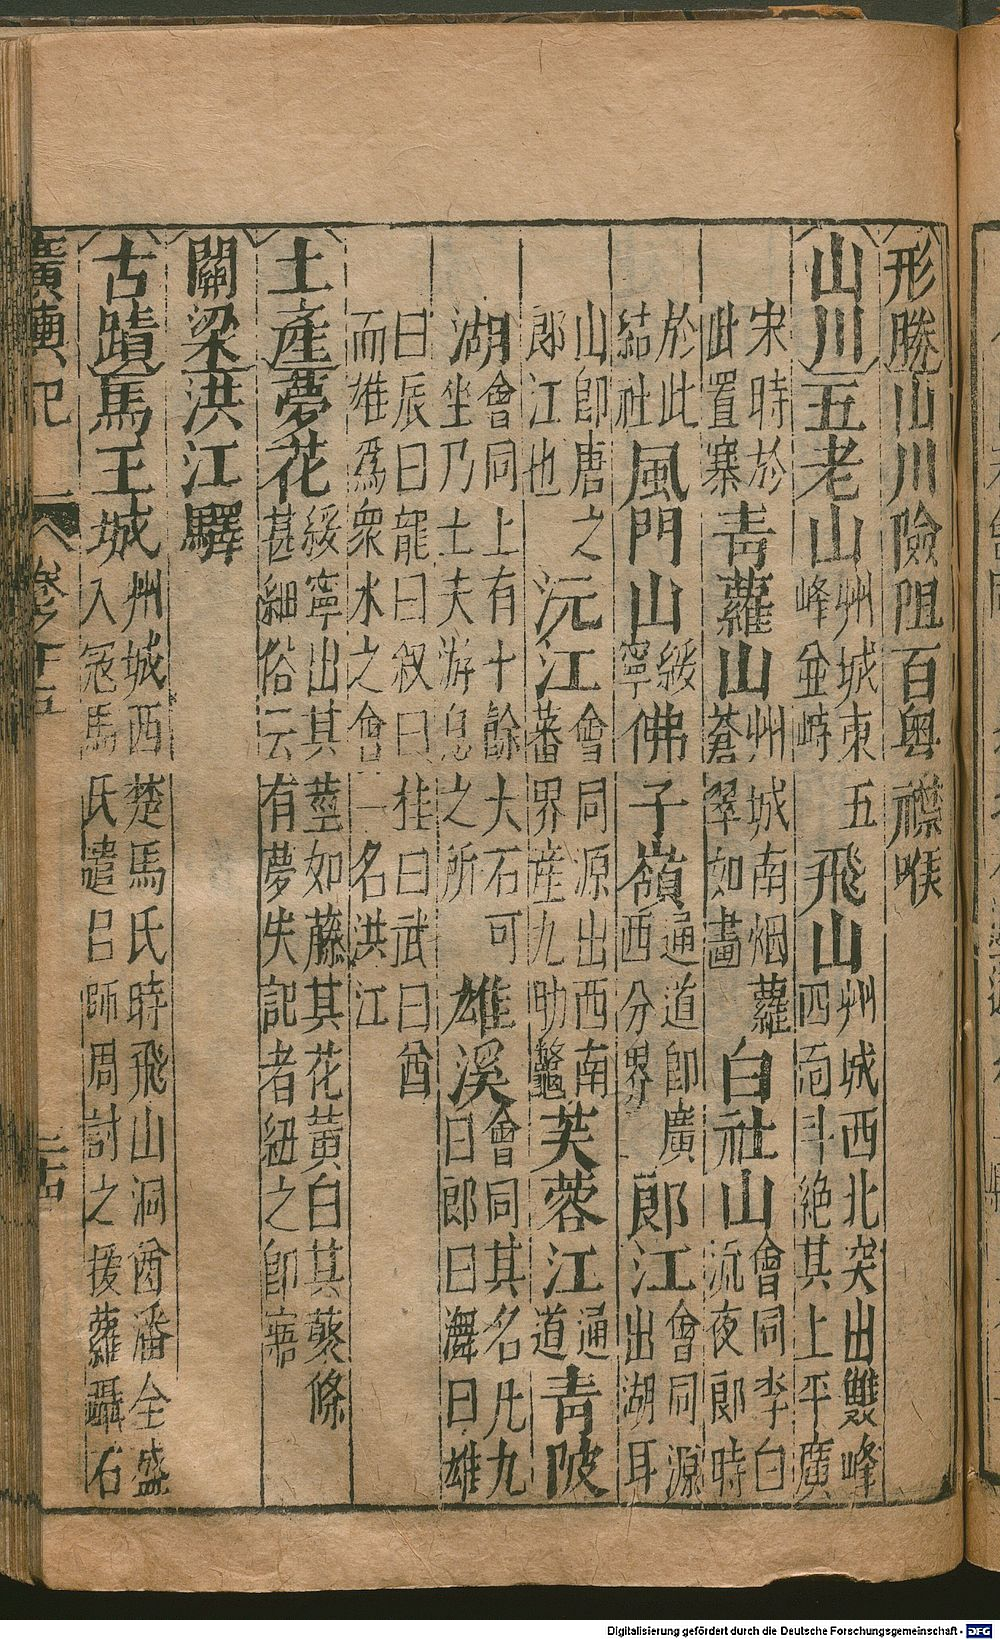 形勝山川險阻百粤襟喉
山川五老山州城東五峰並峙飛山州城西北突出雙峰四面斗絶其上平廣
宋時於此置寨青蘿山州城南烟蘿蒼翠如畫白社山會同李白流夜郎時
於此結社風門山綏寧佛子嶺通道即廣西分界郎江會同源出湖耳
山即唐之郎江也沅江會同源出西南蕃界産九肋鼈芙蓉江通道青陂
湖會同上有十餘大石可坐乃士夫游息之所雄溪會同其名凡九曰郎曰潕曰雄
曰辰曰龍曰叙曰桂曰武曰酋而雄爲衆水之會一名洪江
土產夢花綏寧出其莖如藤其花黄白其葵條甚細俗云有夢失記者紐之即寤
關梁洪江驛
古蹟馬王城州城西楚馬氏時飛山洞酋潘全盛入冦馬氏遣吕師周討之援蘿躡石
廣輿記 卷之十五
Digitalisierung gefördert durch die Deutsche Forschungsgemeinschaft - DFG